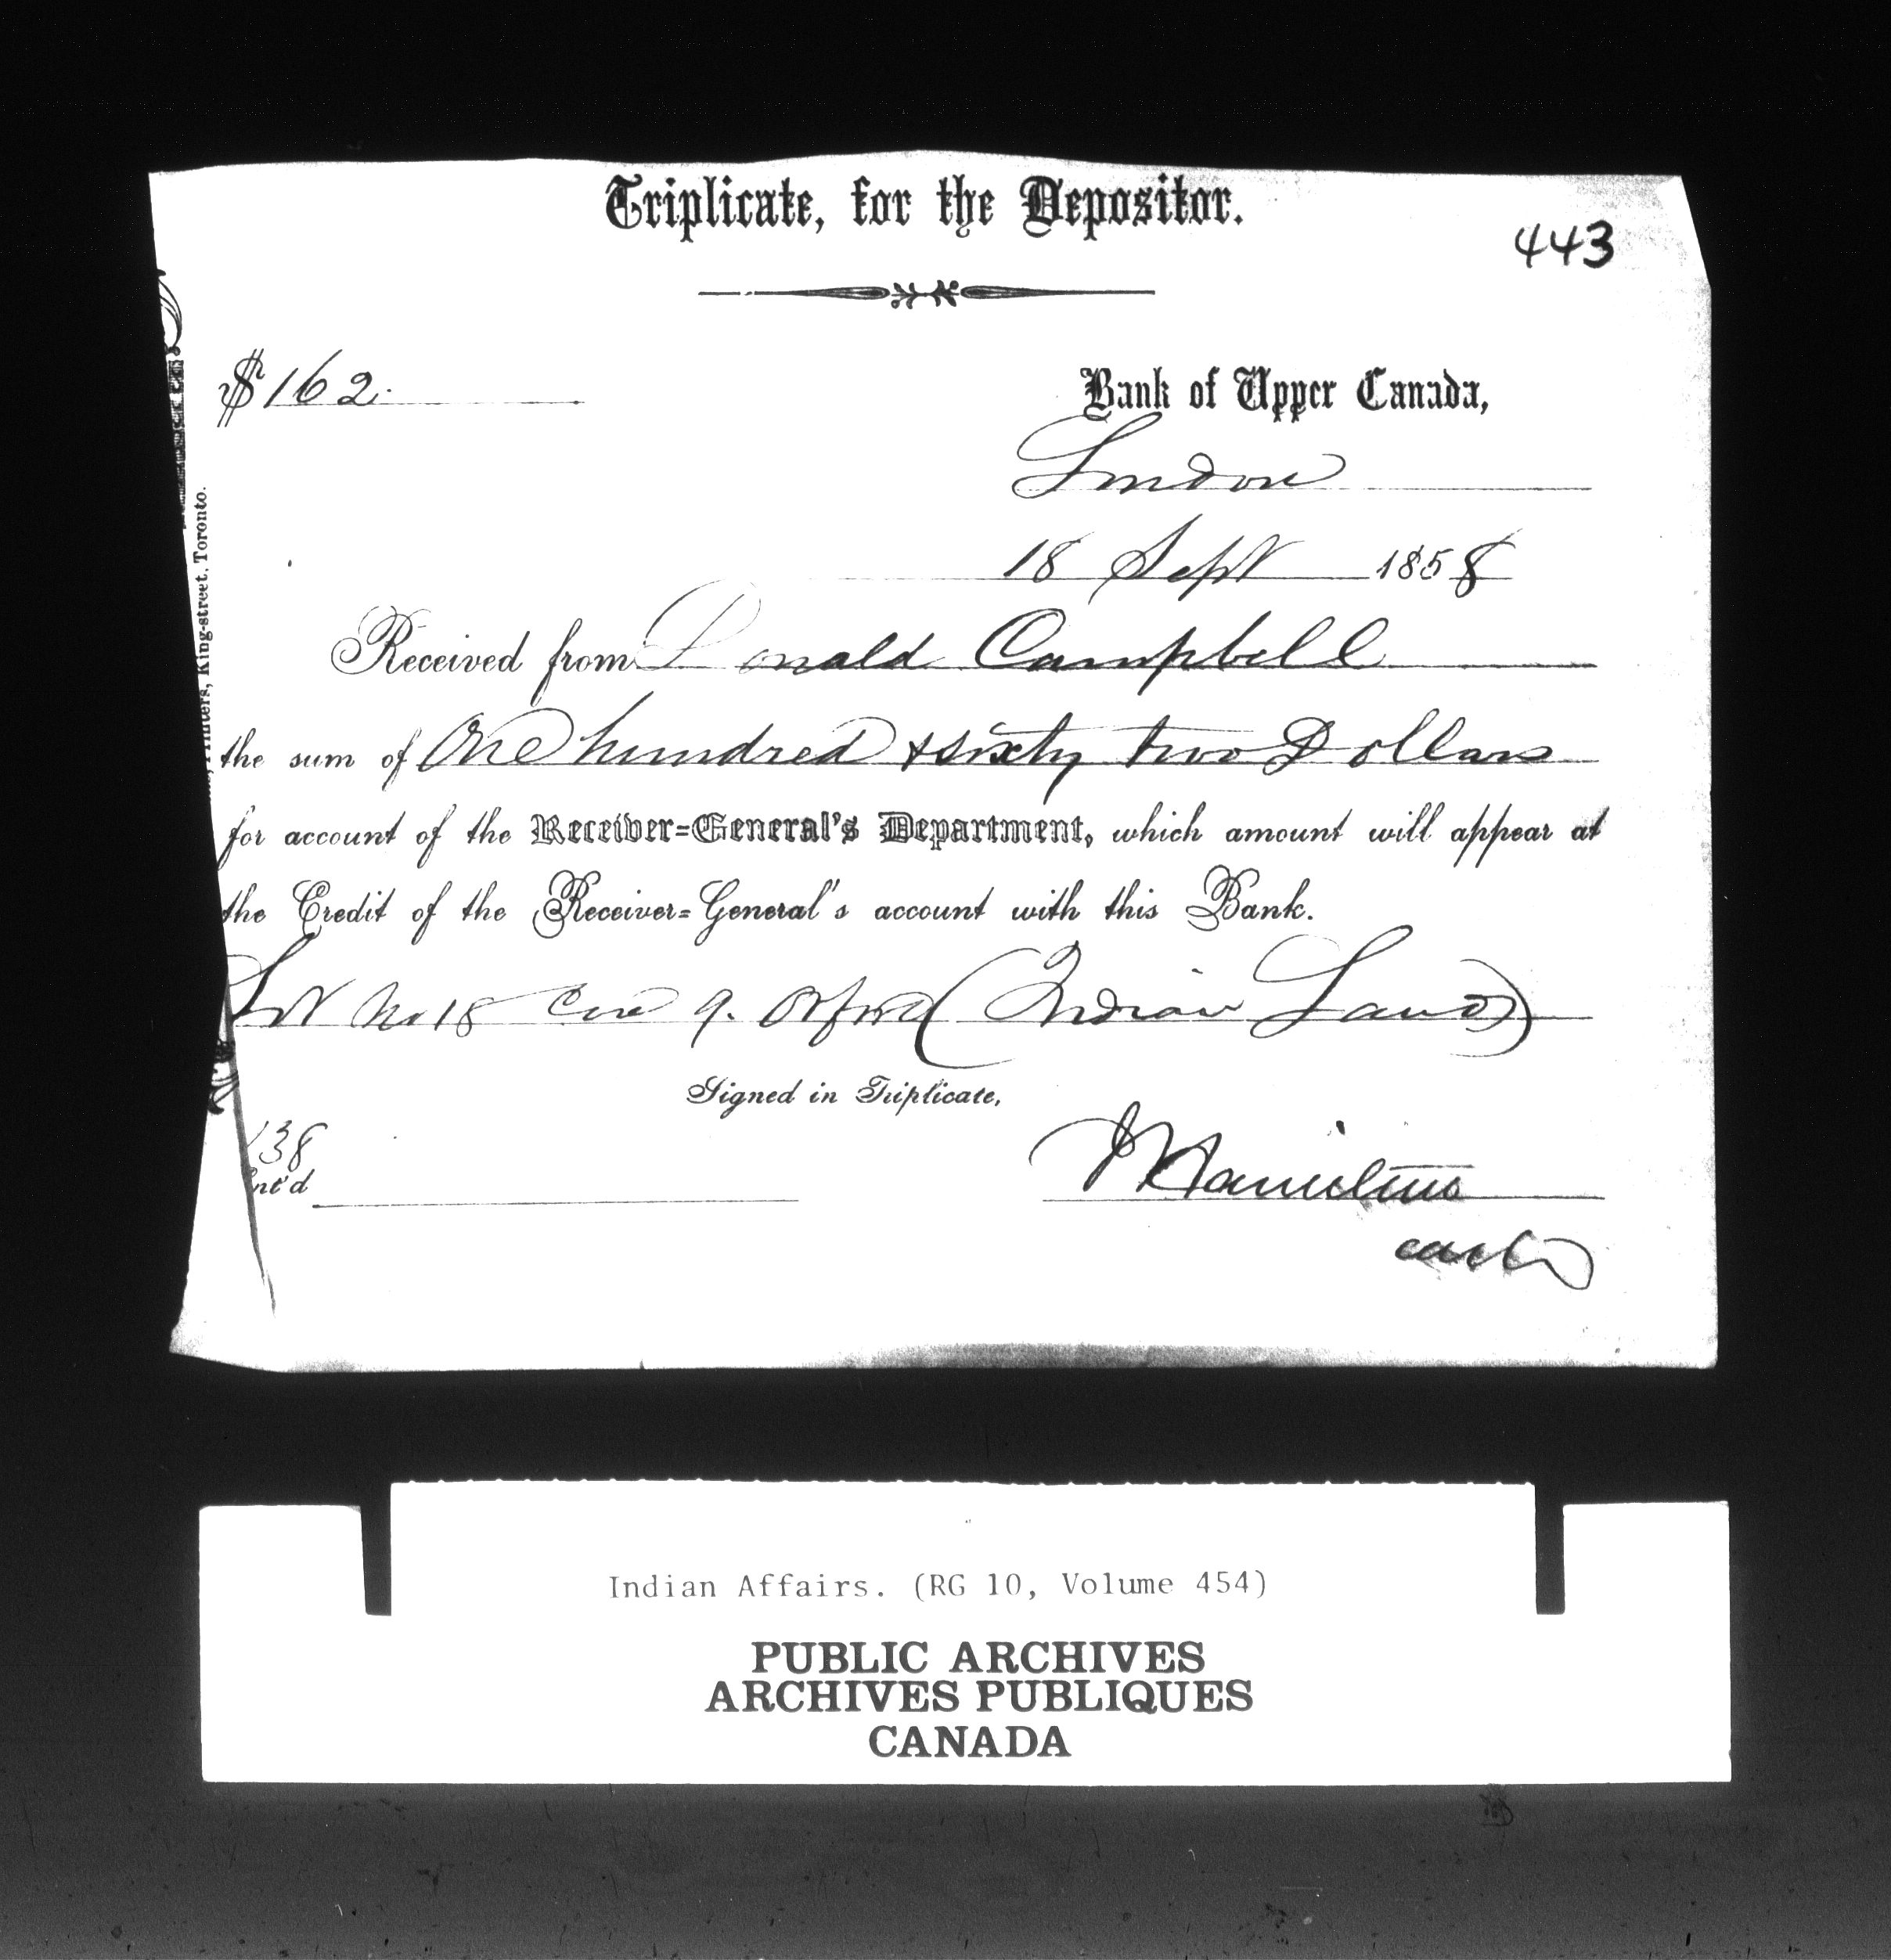 Triplicate, for the Depositor.
443
$162.
Bank of Upper Canada,
London
18 Sept 1858
Received from Donald Campbell
the sum of One hundred & sixty two Dollars
for account of the Receiver=General's Department, which amount will appear at
the Credit of the Receiver=General's account with this Bank.
Lot No 18 Con 9. Orford (Indian Land)
Signed in Triplicate,
138
Ent'd
Hamilton
Printers, King-street, Toronto.
Indian Affairs. (RG 10, Volume 454)
PUBLIC ARCHIVES
ARCHIVES PUBLIQUES
CANADA